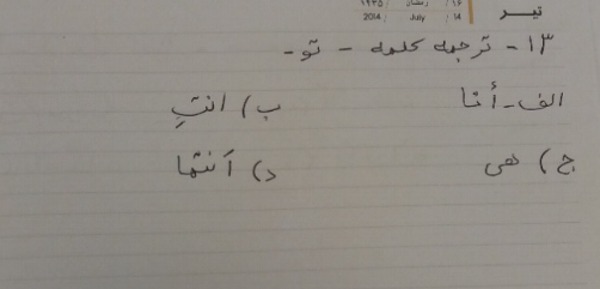 تیر
۱۶ / رمضان / ۱۴۳۵
14 / July / 2014
۱۳ - ترجمه کلمه - تو -
الف - أنا ب) انتِ
ج) هی د) أنتما